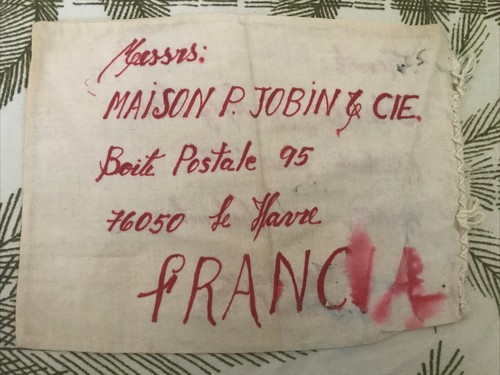 Messrs:
MAISON P. JOBIN & CIE.
Boite Postale 95
76050 Le Havre
FRANCIA